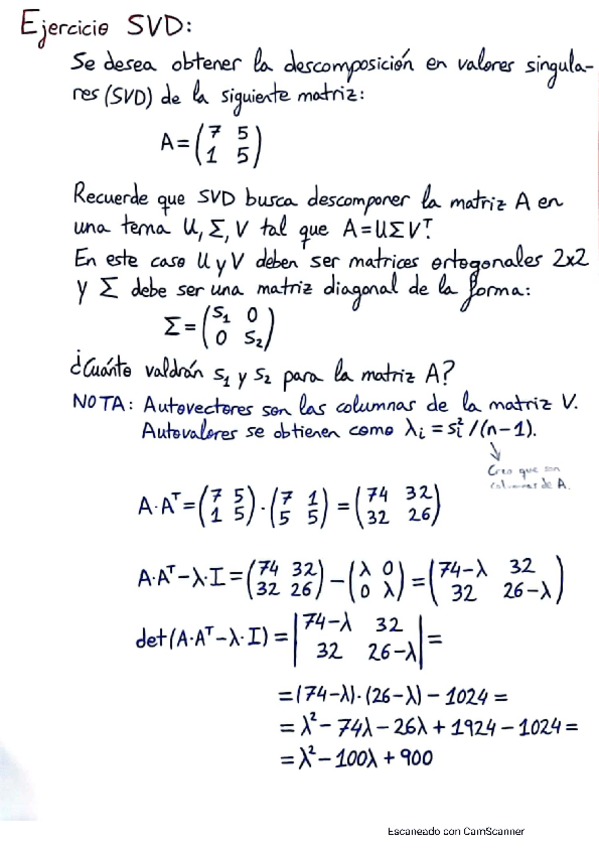 Ejercicio SVD:
Se desea obtener la descomposición en valores singula-
res (SVD) de la siguiente matriz:
A = (7 5
1 5)
Recuerde que SVD busca descomponer la matriz A en
una terna U, Σ, V tal que A=UΣVᵀ.
En este caso U y V deben ser matrices ortogonales 2x2
y Σ debe ser una matriz diagonal de la forma:
Σ = (S₁ 0
0 S₂)
¿Cuánto valdrán s₁ y s₂ para la matriz A?
NOTA: Autovectores son las columnas de la matriz V.
Autovalores se obtienen como λᵢ = sᵢ²/(n-1).
Creo que son
columnas de A.
A·Aᵀ = (7 5; 1 5) · (7 1; 5 5) = (74 32; 32 26)
A·Aᵀ-λ·I = (74 32; 32 26) - (λ 0; 0 λ) = (74-λ 32; 32 26-λ)
det(A·Aᵀ-λ·I) = |74-λ 32; 32 26-λ| =
= (74-λ)·(26-λ) - 1024 =
= λ² - 74λ - 26λ + 1924 - 1024 =
= λ² - 100λ + 900
Escaneado con CamScanner